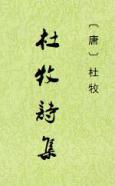 〔唐〕杜牧
杜牧詩集